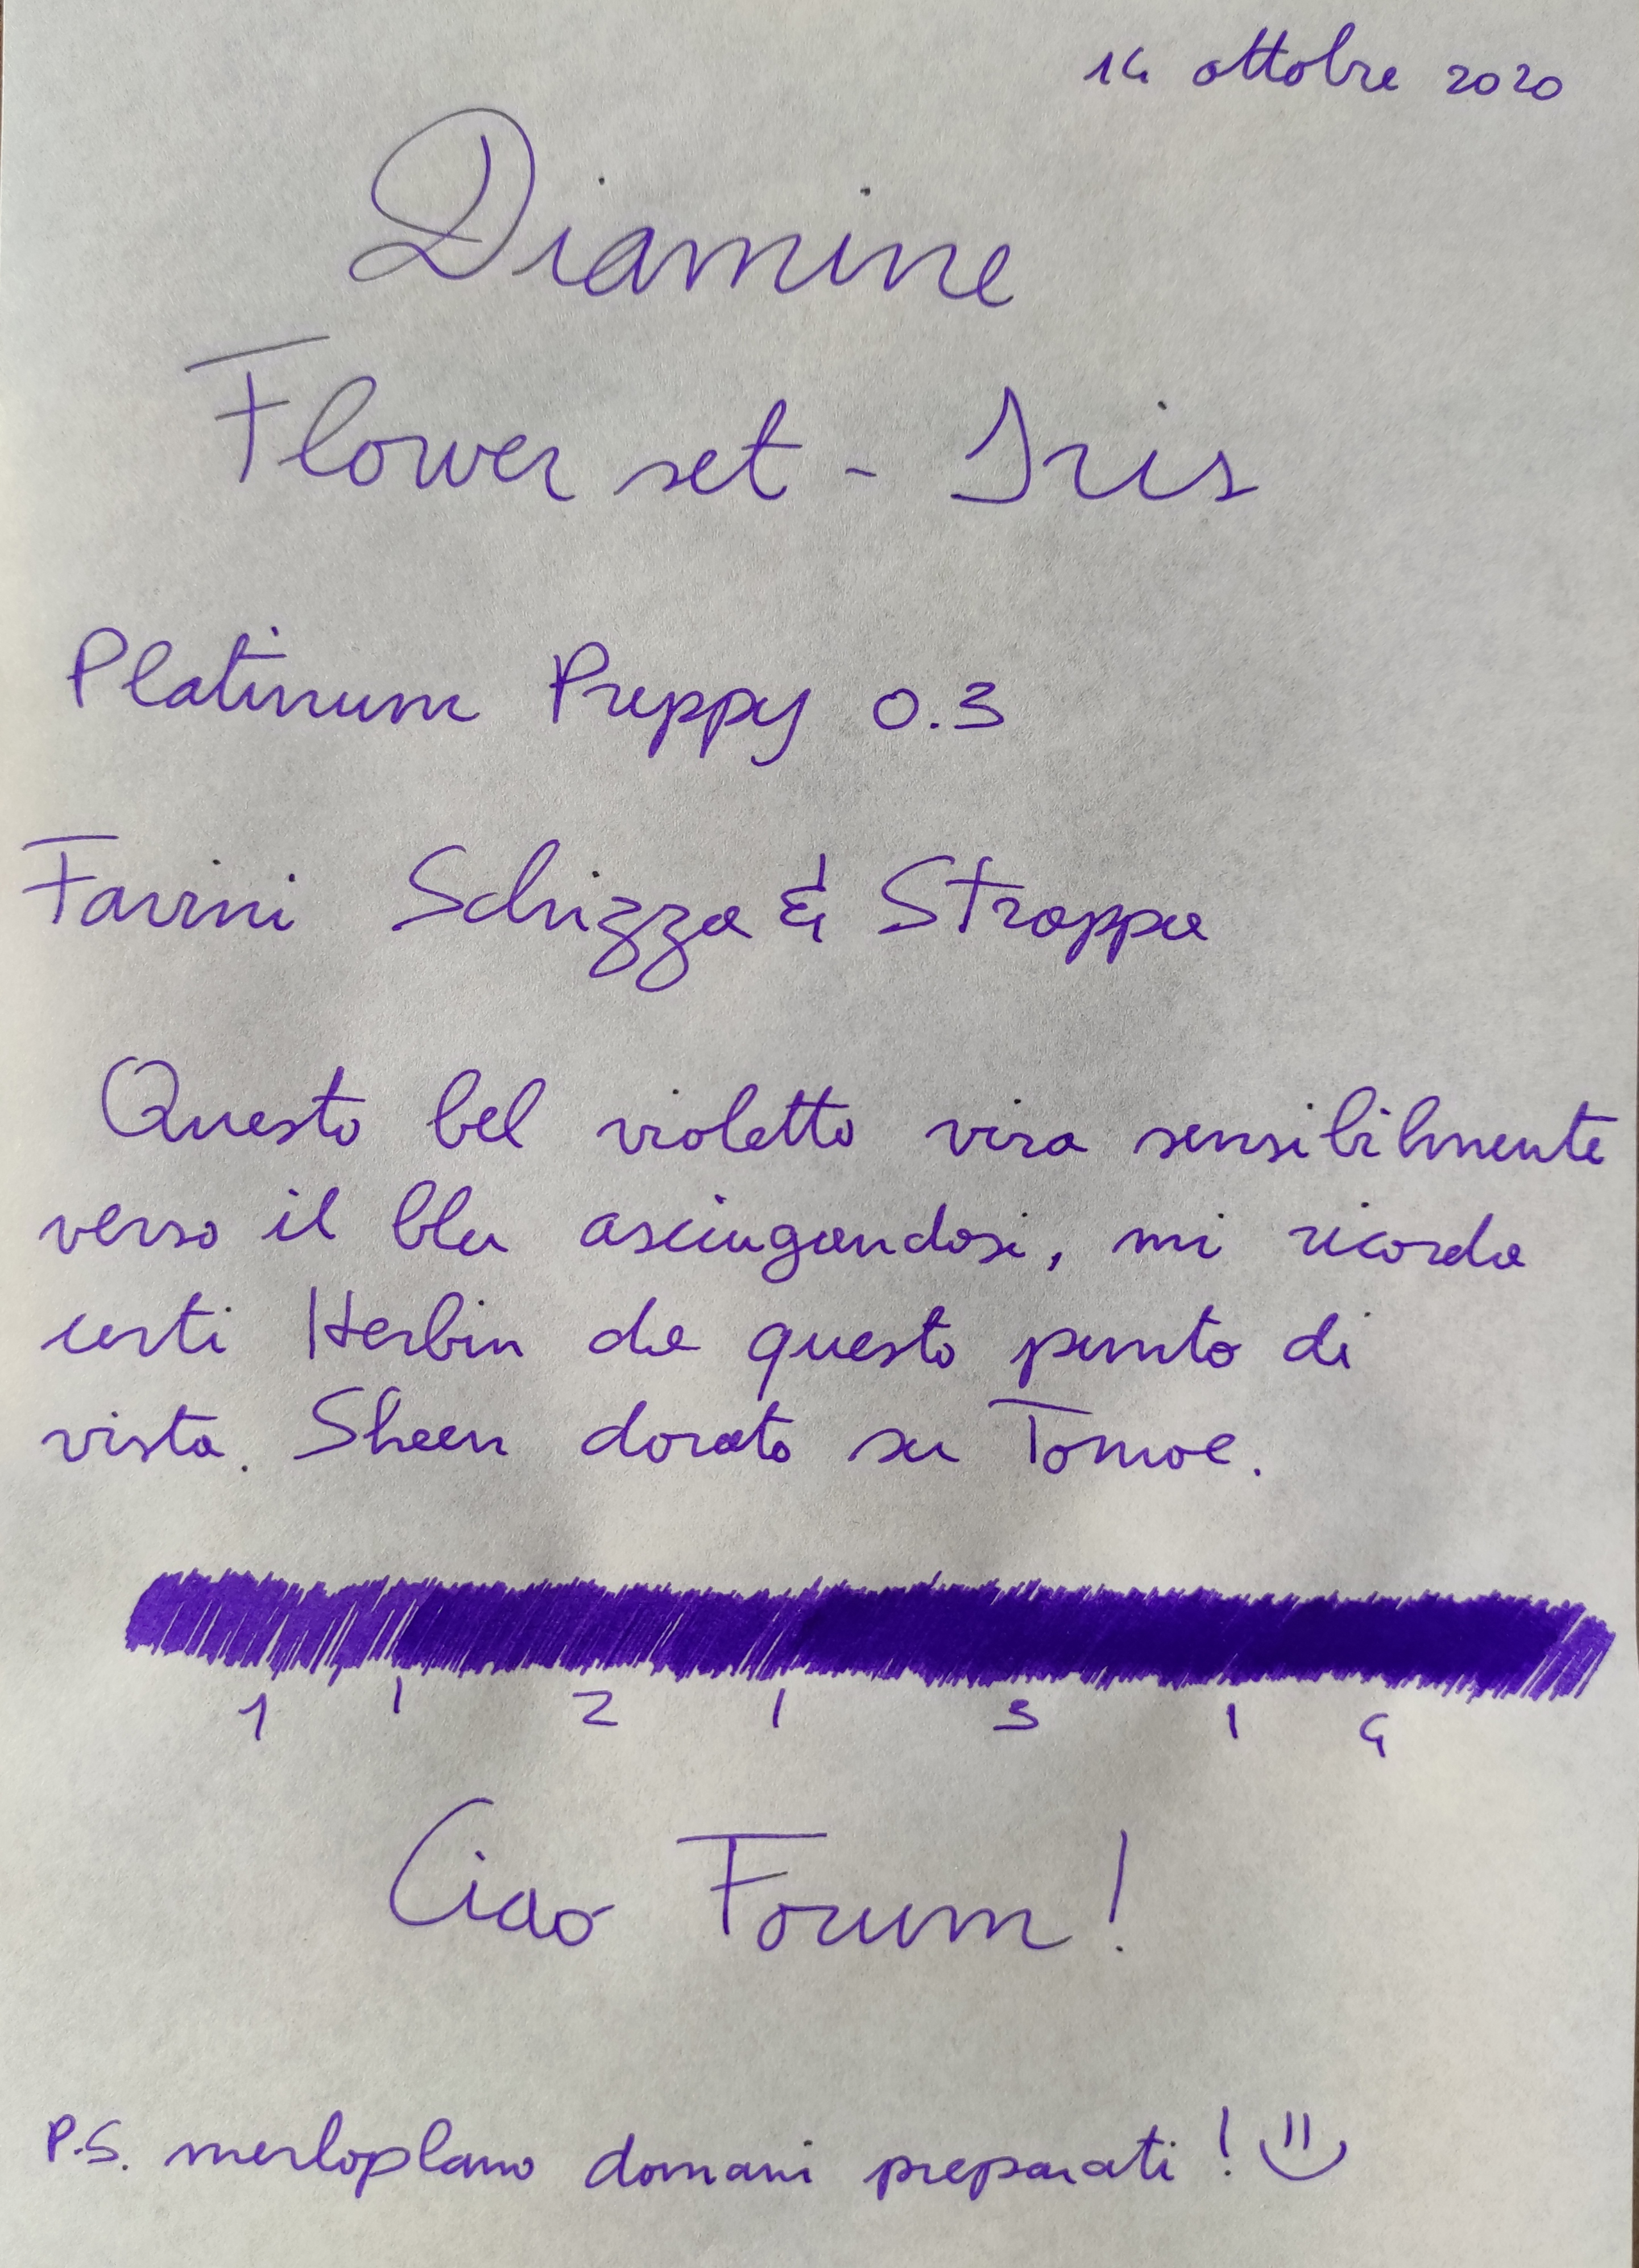 14 ottobre 2020
Diamine
Flower set - Iris
Platinum Preppy 0.3
Favini Schizza & Strappa
Questo bel violetto vira sensibilmente
verso il blu asciugandosi, mi ricorda
certi Herbin da questo punto di
vista. Sheen dorato su Tomoe.
1 | 2 | 3 | 4
Ciao Forum!
P.S. merloplano domani preparati! =)